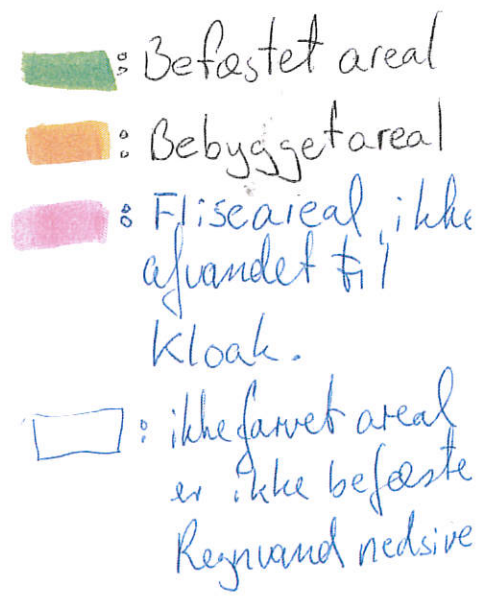 : Befæstet areal
: Bebygget areal
: Fliseareal, ikke
afvandet til
Kloak.
: ikke farvet areal
er ikke befæste
Regnvand nedsive